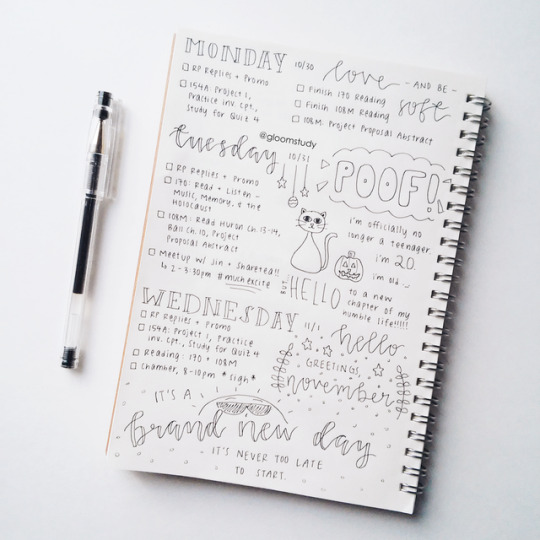 MONDAY 10/30
RP Replies + Promo
154A: Project 1,
Practice inv. cpt.,
Study for Quiz 4
love
- AND BE -
soft
Finish 170 Reading
Finish 108M Reading
108M: Project Proposal Abstract
@gloomstudy
tuesday 10/31
RP Replies + Promo
170: Read + Listen -
Music, Memory, + the
Holocaust
108M: Read Huron Ch. 13-14,
Ball Ch. 10, Project
Proposal Abstract
Meetup w/ Jin + Sharetea!!
↳ 2-3:30pm #muchexcite
POOF!
i'm officially no
longer a teenager.
i'm 20.
i'm old
BUT HELLO to a new
chapter of my
humble life!!!!!
WEDNESDAY 11/1
RP Replies + Promo
154A: Project 1, Practice
inv. cpt., Study for Quiz 4
Reading: 170 + 108M
Chamber, 8-10pm *sigh*
hello
GREETINGS,
november
IT'S A
brand new day
IT'S NEVER TOO LATE
TO START.